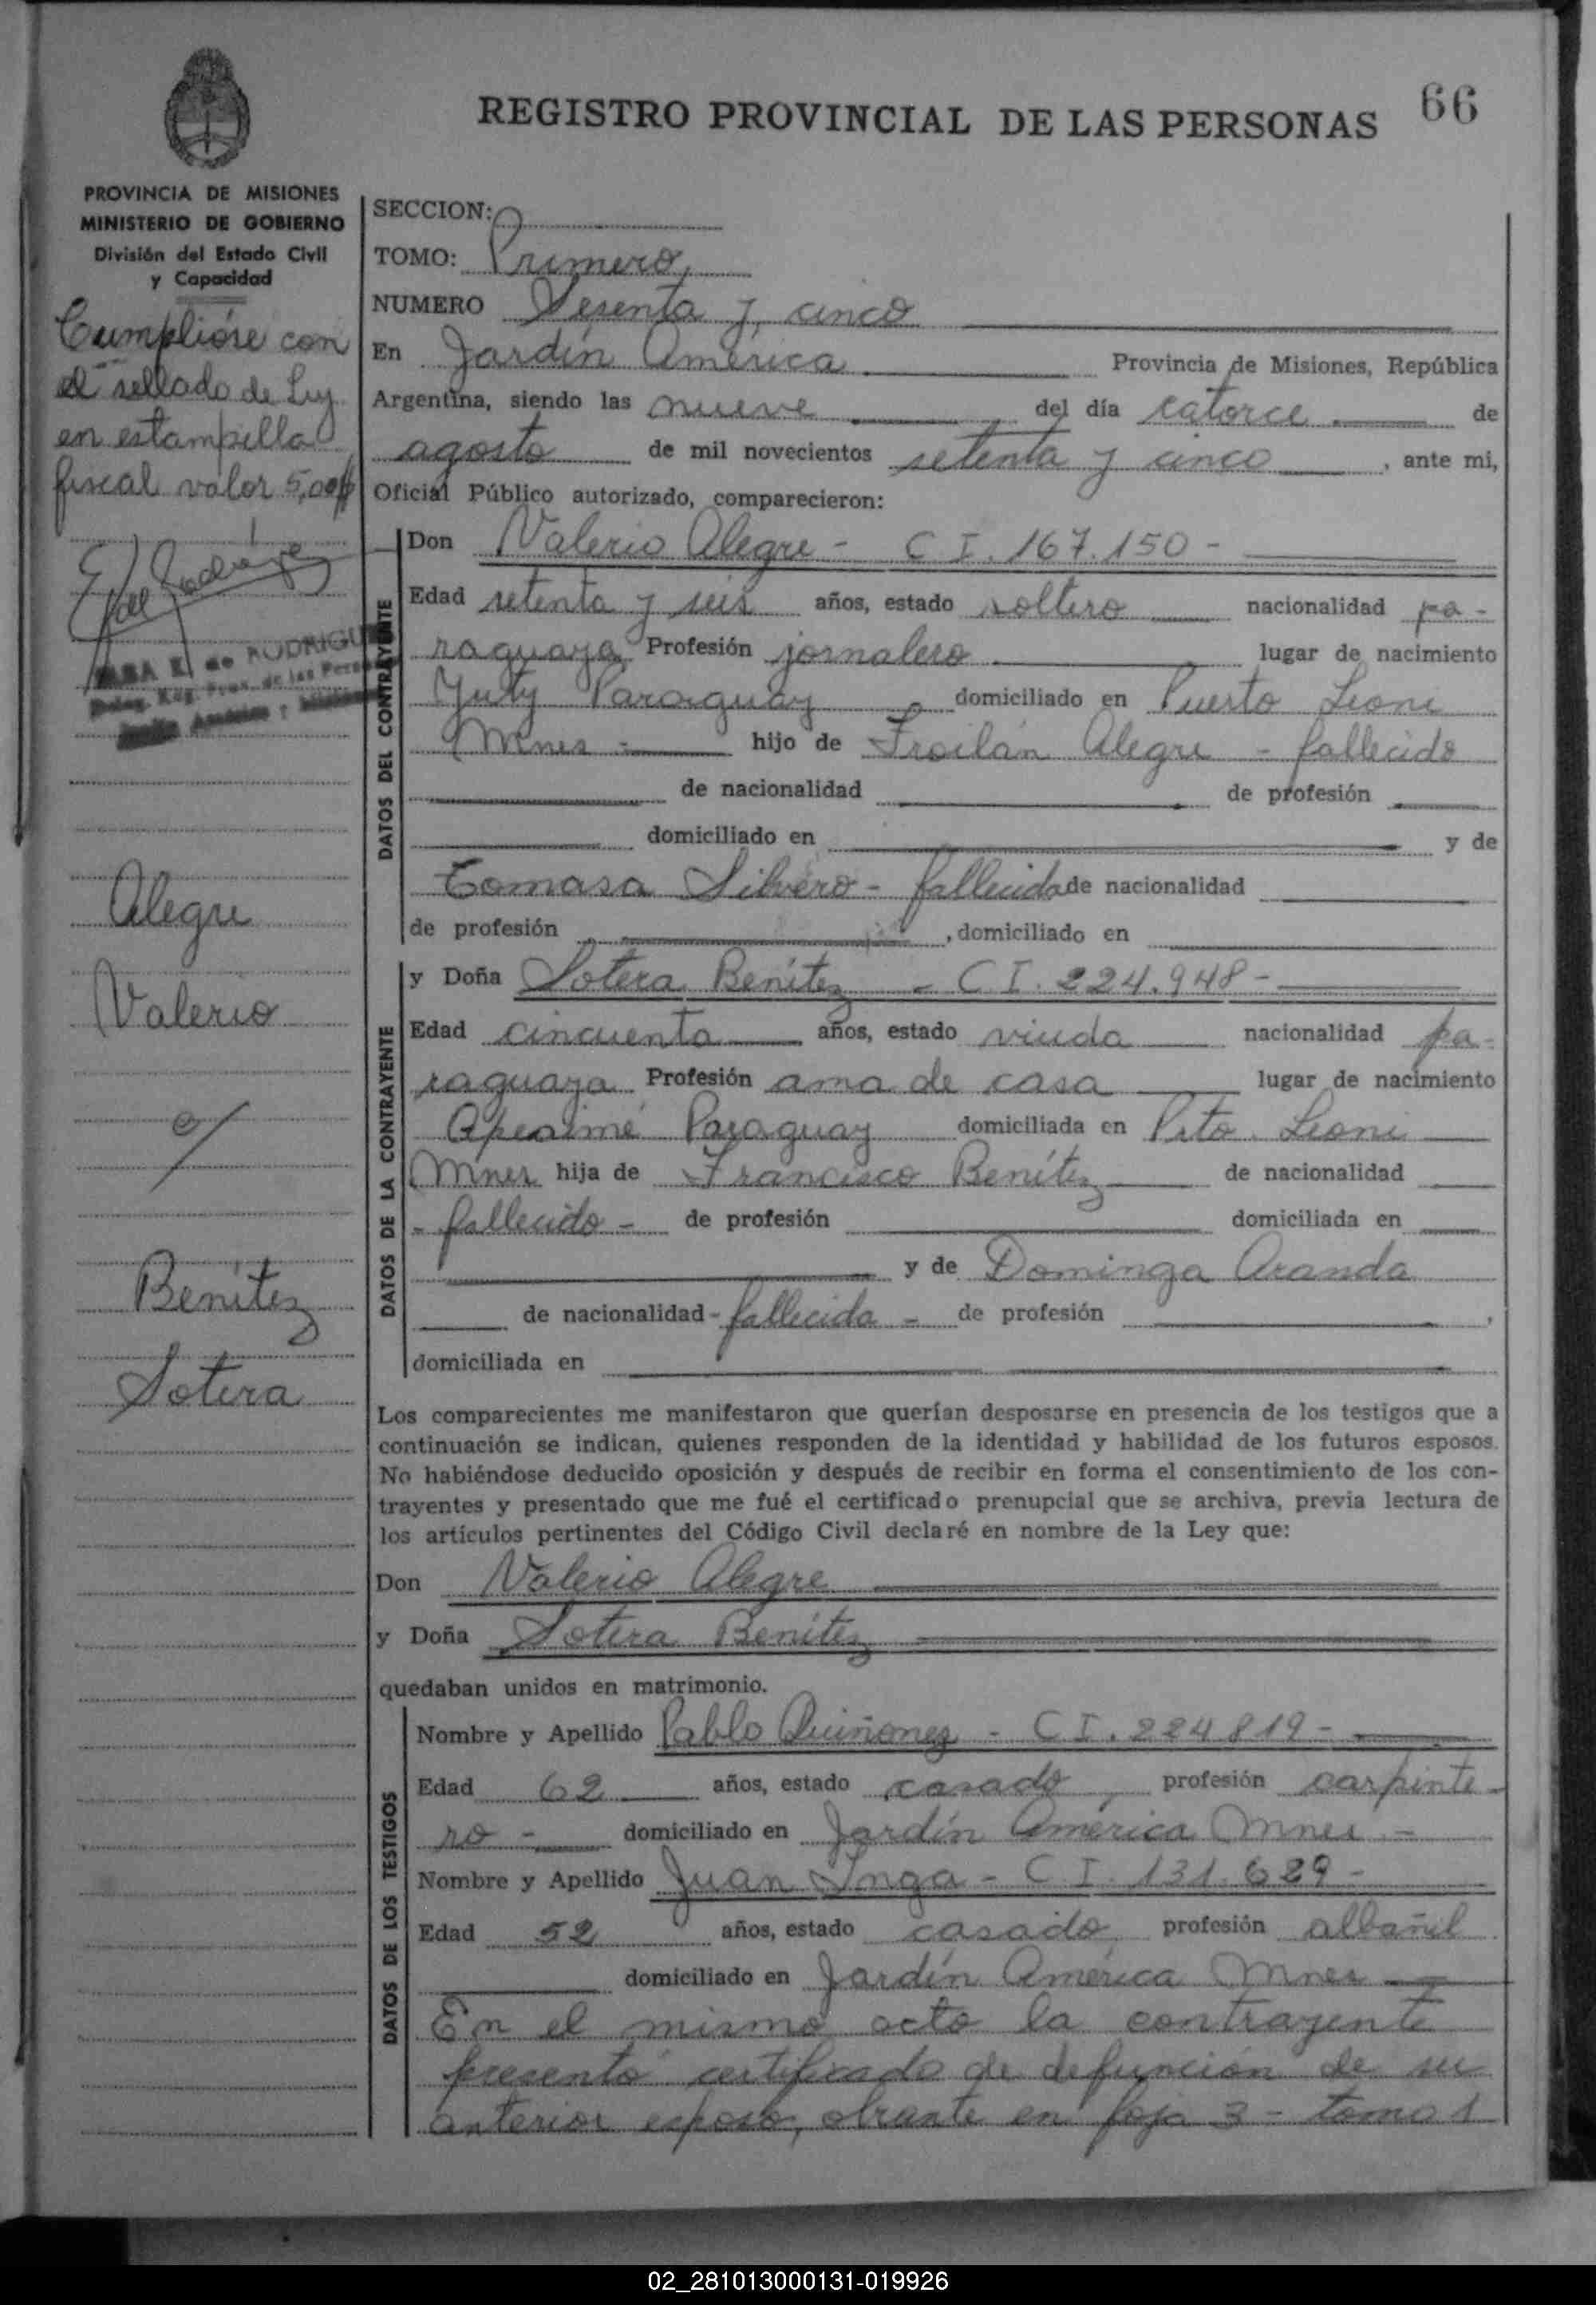 66
REGISTRO PROVINCIAL DE LAS PERSONAS
PROVINCIA DE MISIONES
MINISTERIO DE GOBIERNO
División del Estado Civil
y Capacidad
Cumplióse con
el sellado de Ley
en estampilla
fiscal valor 5,00
de RODRIGU
Alegre
Valerio
c/
Benítez
Sotera
SECCION:
TOMO: Primero
NUMERO Sesenta y cinco
En Jardín América Provincia de Misiones, República
Argentina, siendo las nueve del día catorce de
agosto de mil novecientos setenta y cinco, ante mi,
Oficial Público autorizado, comparecieron:
DATOS DEL CONTRAYENTE
Don Valerio Alegre - C I. 167.150 -
Edad setenta y seis años, estado soltero nacionalidad pa-
raguaya Profesión jornalero lugar de nacimiento
Yuty Paraguay domiciliado en Puerto Leoni
Mnes - hijo de Froilán Alegre - fallecido
de nacionalidad de profesión
domiciliado en y de
Tomasa Silvero - fallecida de nacionalidad
de profesión , domiciliado en
DATOS DE LA CONTRAYENTE
y Doña Sotera Benítez - C I. 224.948 -
Edad cincuenta años, estado viuda nacionalidad pa-
raguaya Profesión ama de casa lugar de nacimiento
Paraguay domiciliada en Pto. Leoni
Mnes hija de Francisco Benítez de nacionalidad
- fallecido - de profesión domiciliada en
y de Dominga Aranda
de nacionalidad - fallecida - de profesión ,
domiciliada en
Los comparecientes me manifestaron que querían desposarse en presencia de los testigos que a
continuación se indican, quienes responden de la identidad y habilidad de los futuros esposos.
No habiéndose deducido oposición y después de recibir en forma el consentimiento de los con-
trayentes y presentado que me fué el certificado prenupcial que se archiva, previa lectura de
los artículos pertinentes del Código Civil declaré en nombre de la Ley que:
Don Valerio Alegre
y Doña Sotera Benítez
quedaban unidos en matrimonio.
DATOS DE LOS TESTIGOS
Nombre y Apellido Pablo Quiñonez - C I. 224819 -
Edad 62 años, estado casado profesión carpinte-
ro - domiciliado en Jardín América Mnes -
Nombre y Apellido Juan Inga - C I. 131.629 -
Edad 52 años, estado casado profesión albañil
domiciliado en Jardín América Mnes
En el mismo acto la contrayente
presentó certificado de defunción de su
anterior esposo, obrante en foja 3 - tomo 1
02_281013000131-019926